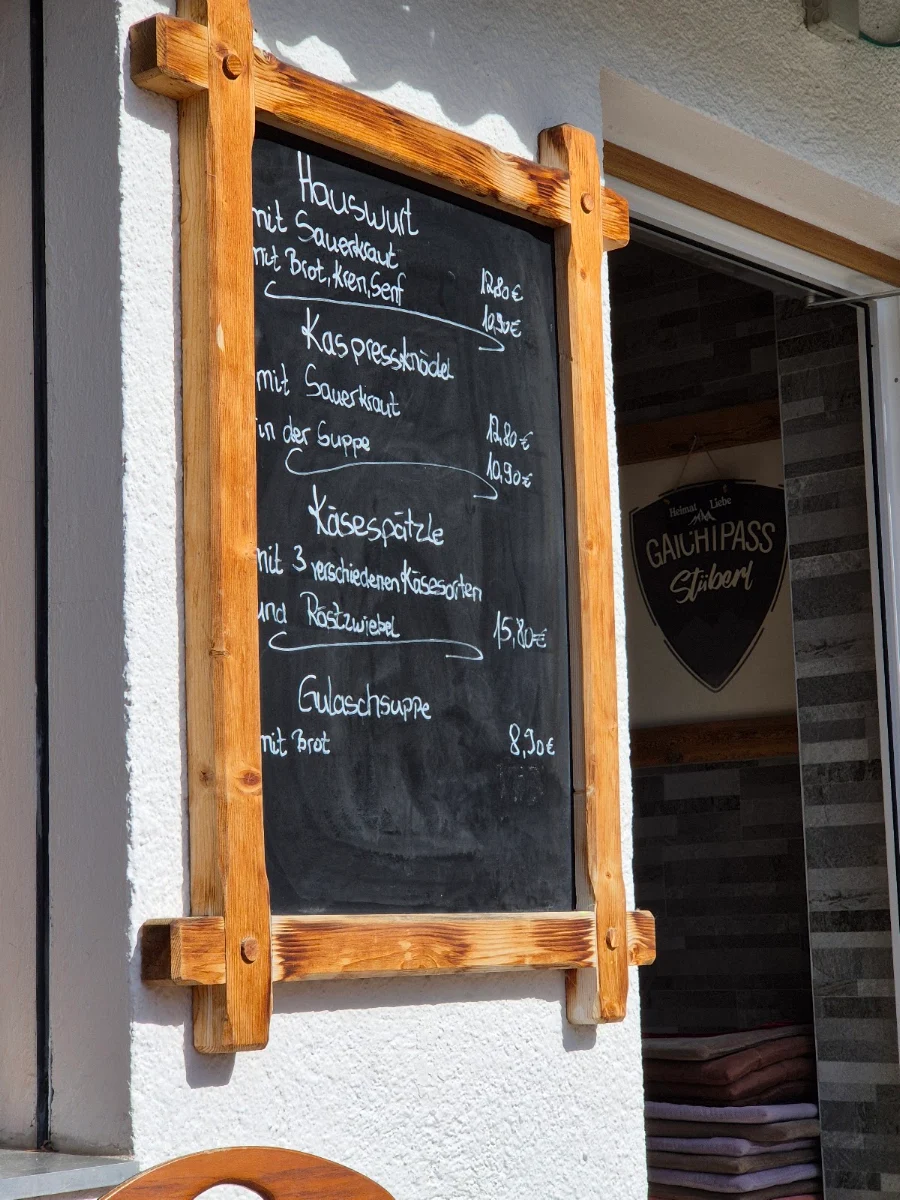 Hauswurt
mit Sauerkraut 12,80€
mit Brot, Kren, Senf 10,90€
Kaspressknödel
mit Sauerkraut 12,80€
in der Suppe 10,90€
Käsespätzle
mit 3 verschiedenen Käsesorten
und Röstzwiebel 15,80€
Gulaschsuppe
mit Brot 8,90€
Heimat Liebe
GAICHTPASS
Stüberl